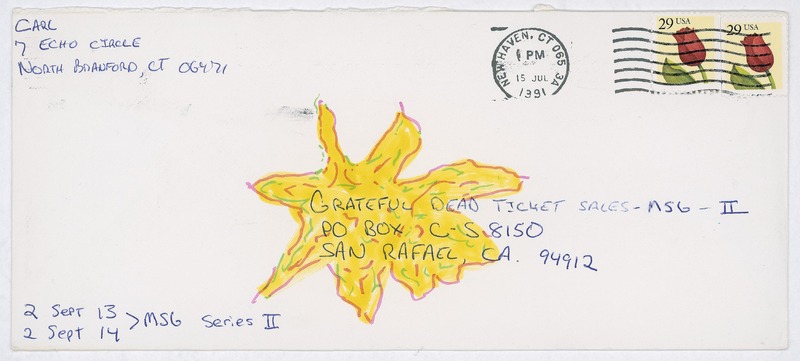 CARL
7 ECHO CIRCLE
NORTH BRANFORD, CT 06471
NEW HAVEN, CT 065 3A
PM
15 JUL
1991
29 USA
29 USA
GRATEFUL DEAD TICKET SALES - MSG - II
PO BOX C-S 8150
SAN RAFAEL, CA. 94912
2 Sept 13 > MSG Series II
2 Sept 14